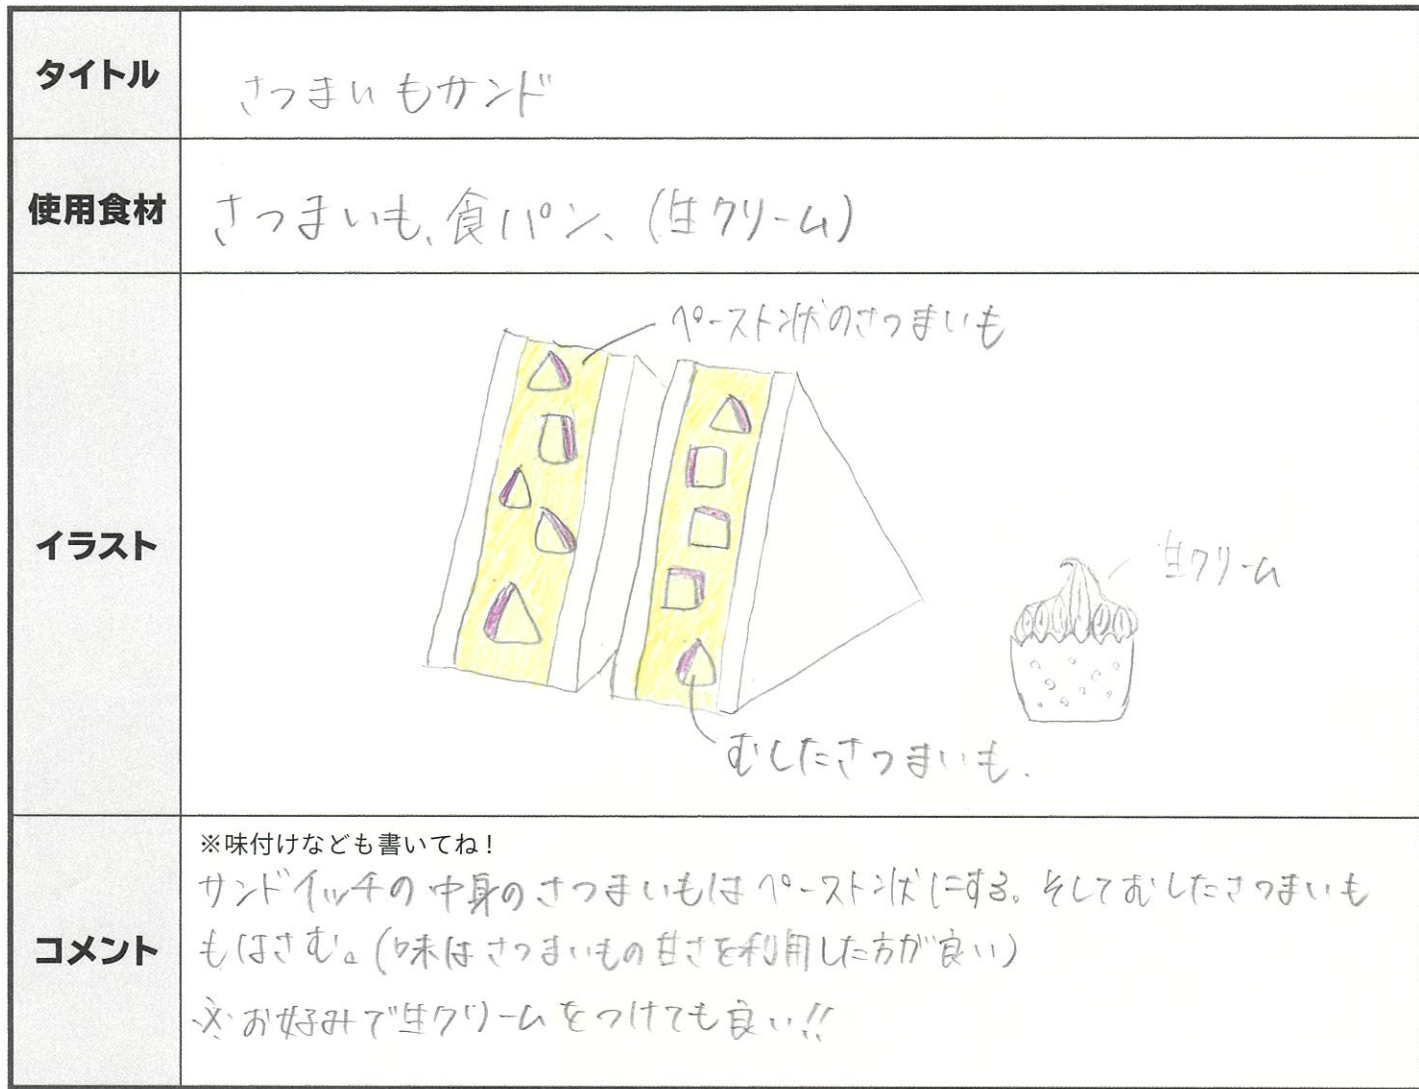 タイトル
さつまいもサンド
使用食材
さつまいも、食パン、(生クリーム)
イラスト
ペースト状のさつまいも
生クリーム
むしたさつまいも.
コメント
※味付けなども書いてね!
サンドイッチの中身のさつまいもはペースト状にする。そしてむしたさつまいも
もはさむ。(味はさつまいもの甘さを利用した方が良い)
※お好みで生クリームをつけても良い!!